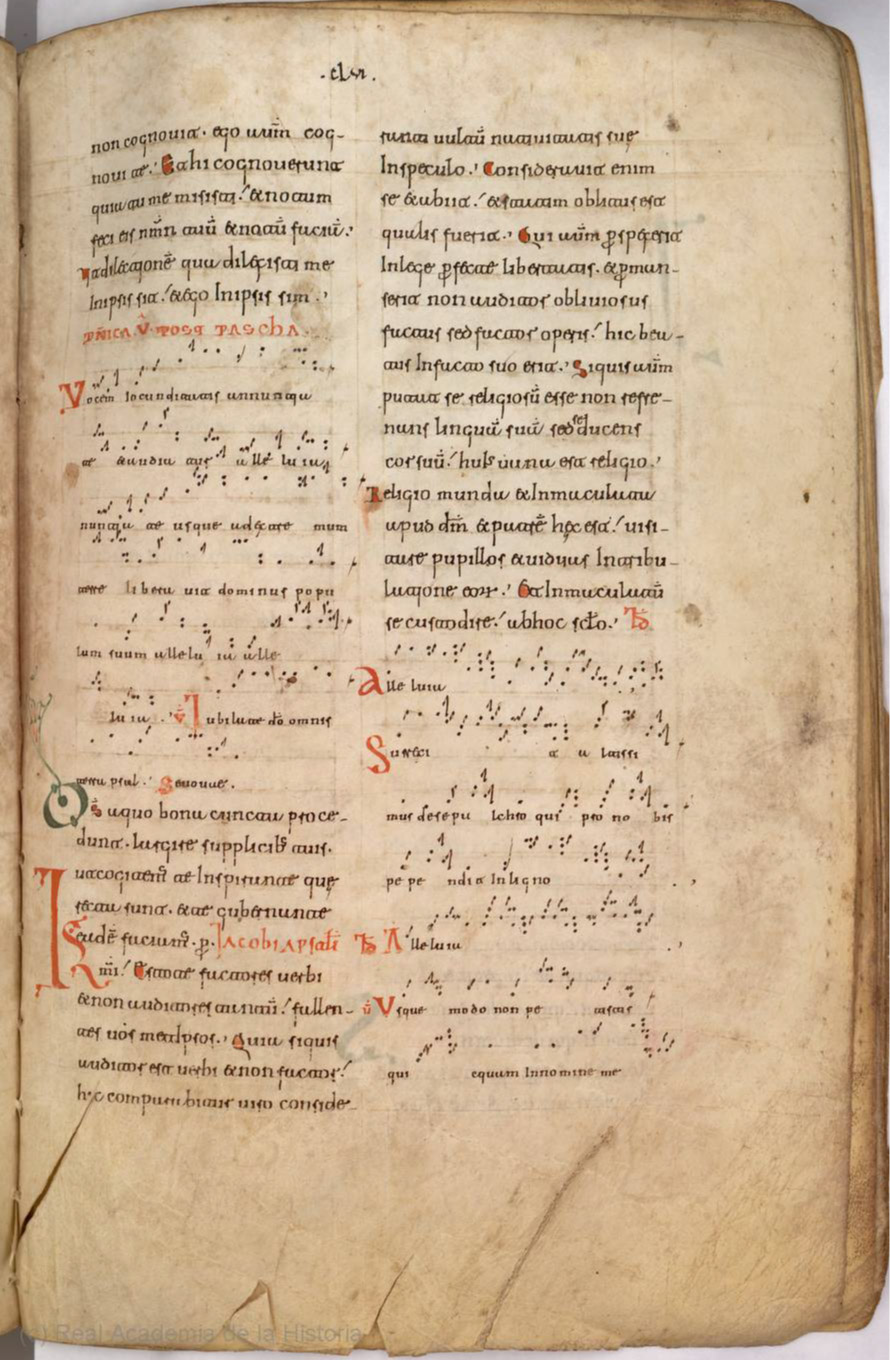 .clvi.
non cognouit. ego autm̄ cog-
noui te. Et hi cognouerunt
quia tu me misisti. & notum
feci eis nm̄n tuū & notū faciā.
Ut dilectione qua dilexisti me
In ipsis sit. & ego In ipsis sim.
DNICA. V. POST PASCHA
Vocem Iocunditatis annuntia
te & audia tur alle lu ia
nuntia te usque ad extre mum
terre libera uit dominus popu
lum suum allelu ia alle
lu ia. ℣ Iubilate dō omnis
terra psal. Seuouae.
Ds̄ a quo bona cuncta proce-
dunt. largire supplicibs tuis.
ut cogitem̄ te Inspirante que
recta sunt. & te gubernante
eadē faciam̄. p. Iacobi apsłi
Kmi. Estote factores uerbi
& non auditores tantū. fallen-
tes uos metipsos. Quia siquis
auditor est uerbi & non factor.
hic comparabitur uiro conside-
ranti uultū natiuitatis sue
In speculo. Considerauit enim
se & abiit. & statim oblitus est
qualis fuerit. Qui autm̄ pspexerit
In lege pfecte libertatis. & pman-
serit non auditor obliuiosus
factus sed factor operis. hic bea-
tus In facto suo erit. Siquis autm̄
putat se religiosū esse non refre-
nans linguā suā sed seducens
cor suū. huis uana est religio.
Religio munda & Inmaculata
apud dm̄ & patrē hec est. uisi-
tare pupillos & uiduas In tribu-
latione eorr. Et Inmaculatū
se custodire. ab hoc sclo.
Alle luia
Surrexi t a ltissi
mus de sepu lchro qui pro no bis
pe pe ndit In ligno
Alleluia
℣ Usque modo non pe tistis
qui cquam In nomine me
(c) Real Academia de la Historia